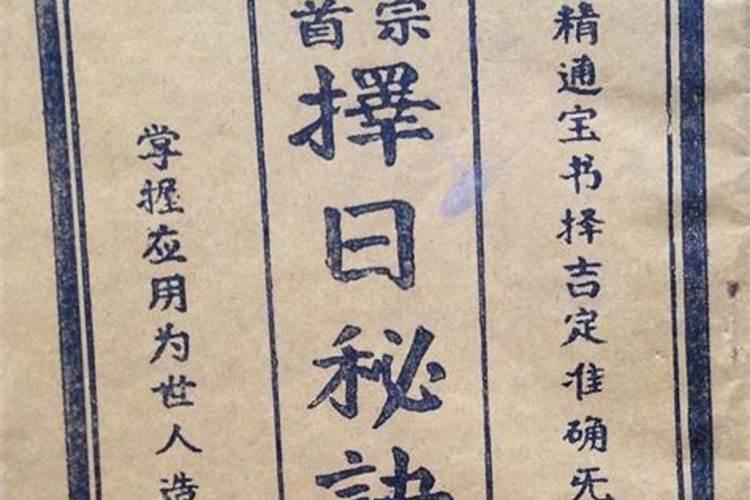 精通宝书择吉定准确无
宗
首
擇日秘訣
掌握应用为世人造